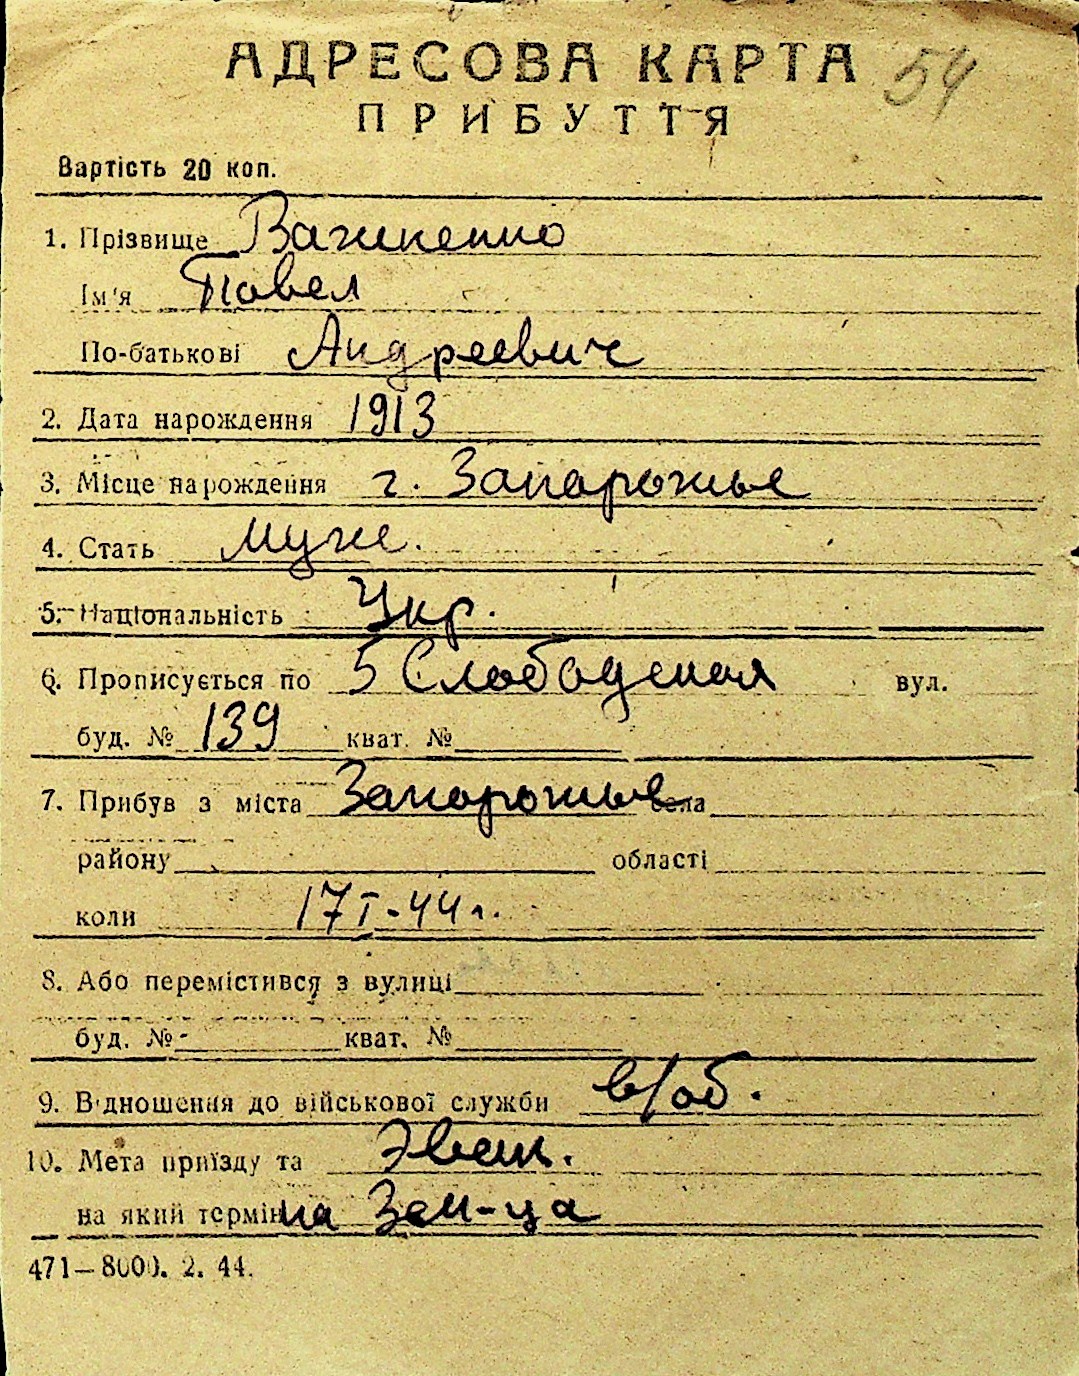 АДРЕСОВА КАРТА 54
ПРИБУТТЯ
Вартість 20 коп.
1. Прізвище
Ім'я Павел
По-батькові Андреевич
2. Дата народження 1913
3. Місце народження г. Запорожье
4. Стать муже.
5. Національність Укр.
6. Прописується по 5 Слободская вул.
буд. № 139 кват. №
7. Прибув з міста Запорожье села
району області
коли 17 I-44 г.
8. Або перемістився з вулиці
буд. № кват. №
9. Відношення до військової служби в/об.
10. Мета приїзду та Эвак.
на який термін на 3 м-ца
471—8000. 2. 44.